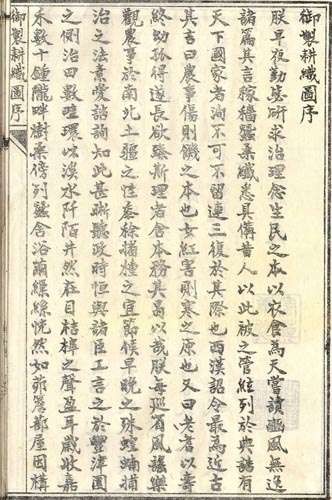 御製耕織圖序
朕早夜勤毖研求治理念生民之本以衣食為天嘗讀豳風無逸
諸篇其言稼穡蠶桑纖悉具備昔人以此被之管絃列於典誥有
天下國家者洵不可不留連三復於其際也西漢詔令最為近古
其言曰農事傷則饑之本也女紅害則寒之原也又曰老者以壽
終幼孤得遂長欲臻斯理者舍本務其曷以哉朕每巡省風謠樂
觀農事於南北土疆之性黍稌播種之宜節候早晚之殊蝗蝻捕
治之法素愛諮詢知此甚晰聽政時恒與諸臣工言之於豐澤園
之側治田數畦環以溪水阡陌井然在目桔槔之聲盈耳歲收嘉
禾數十鍾隴畔樹桑傍列蠶舍浴繭繅絲恍然如茆簷蔀屋因構
御製耕織圖序